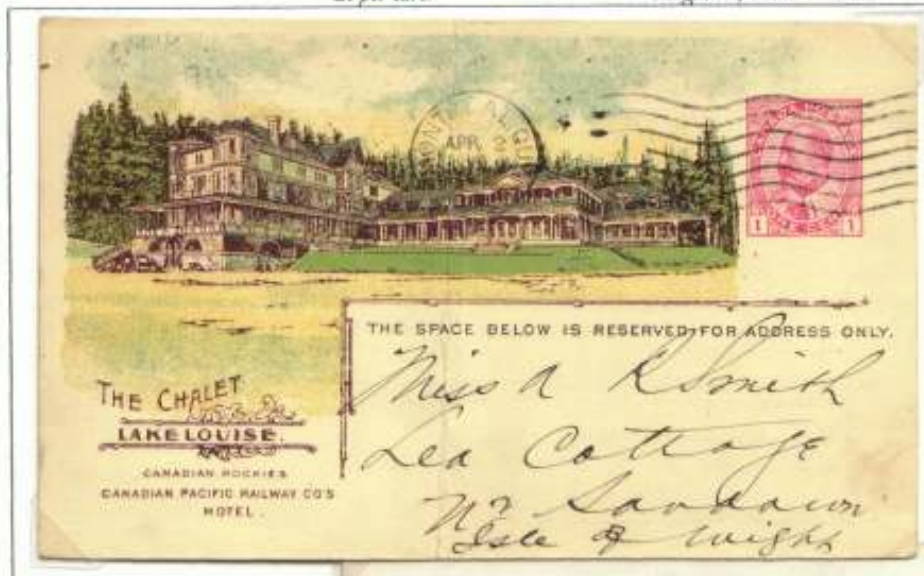 MONT AL QU
APR
1 1
THE SPACE BELOW IS RESERVED FOR ADDRESS ONLY.
Miss A K Smith
Lea Cottage
Nr Sandown
Isle of Wight
THE CHALET
LAKE LOUISE.
CANADIAN ROCKIES
CANADIAN PACIFIC RAILWAY CO'S
HOTEL.